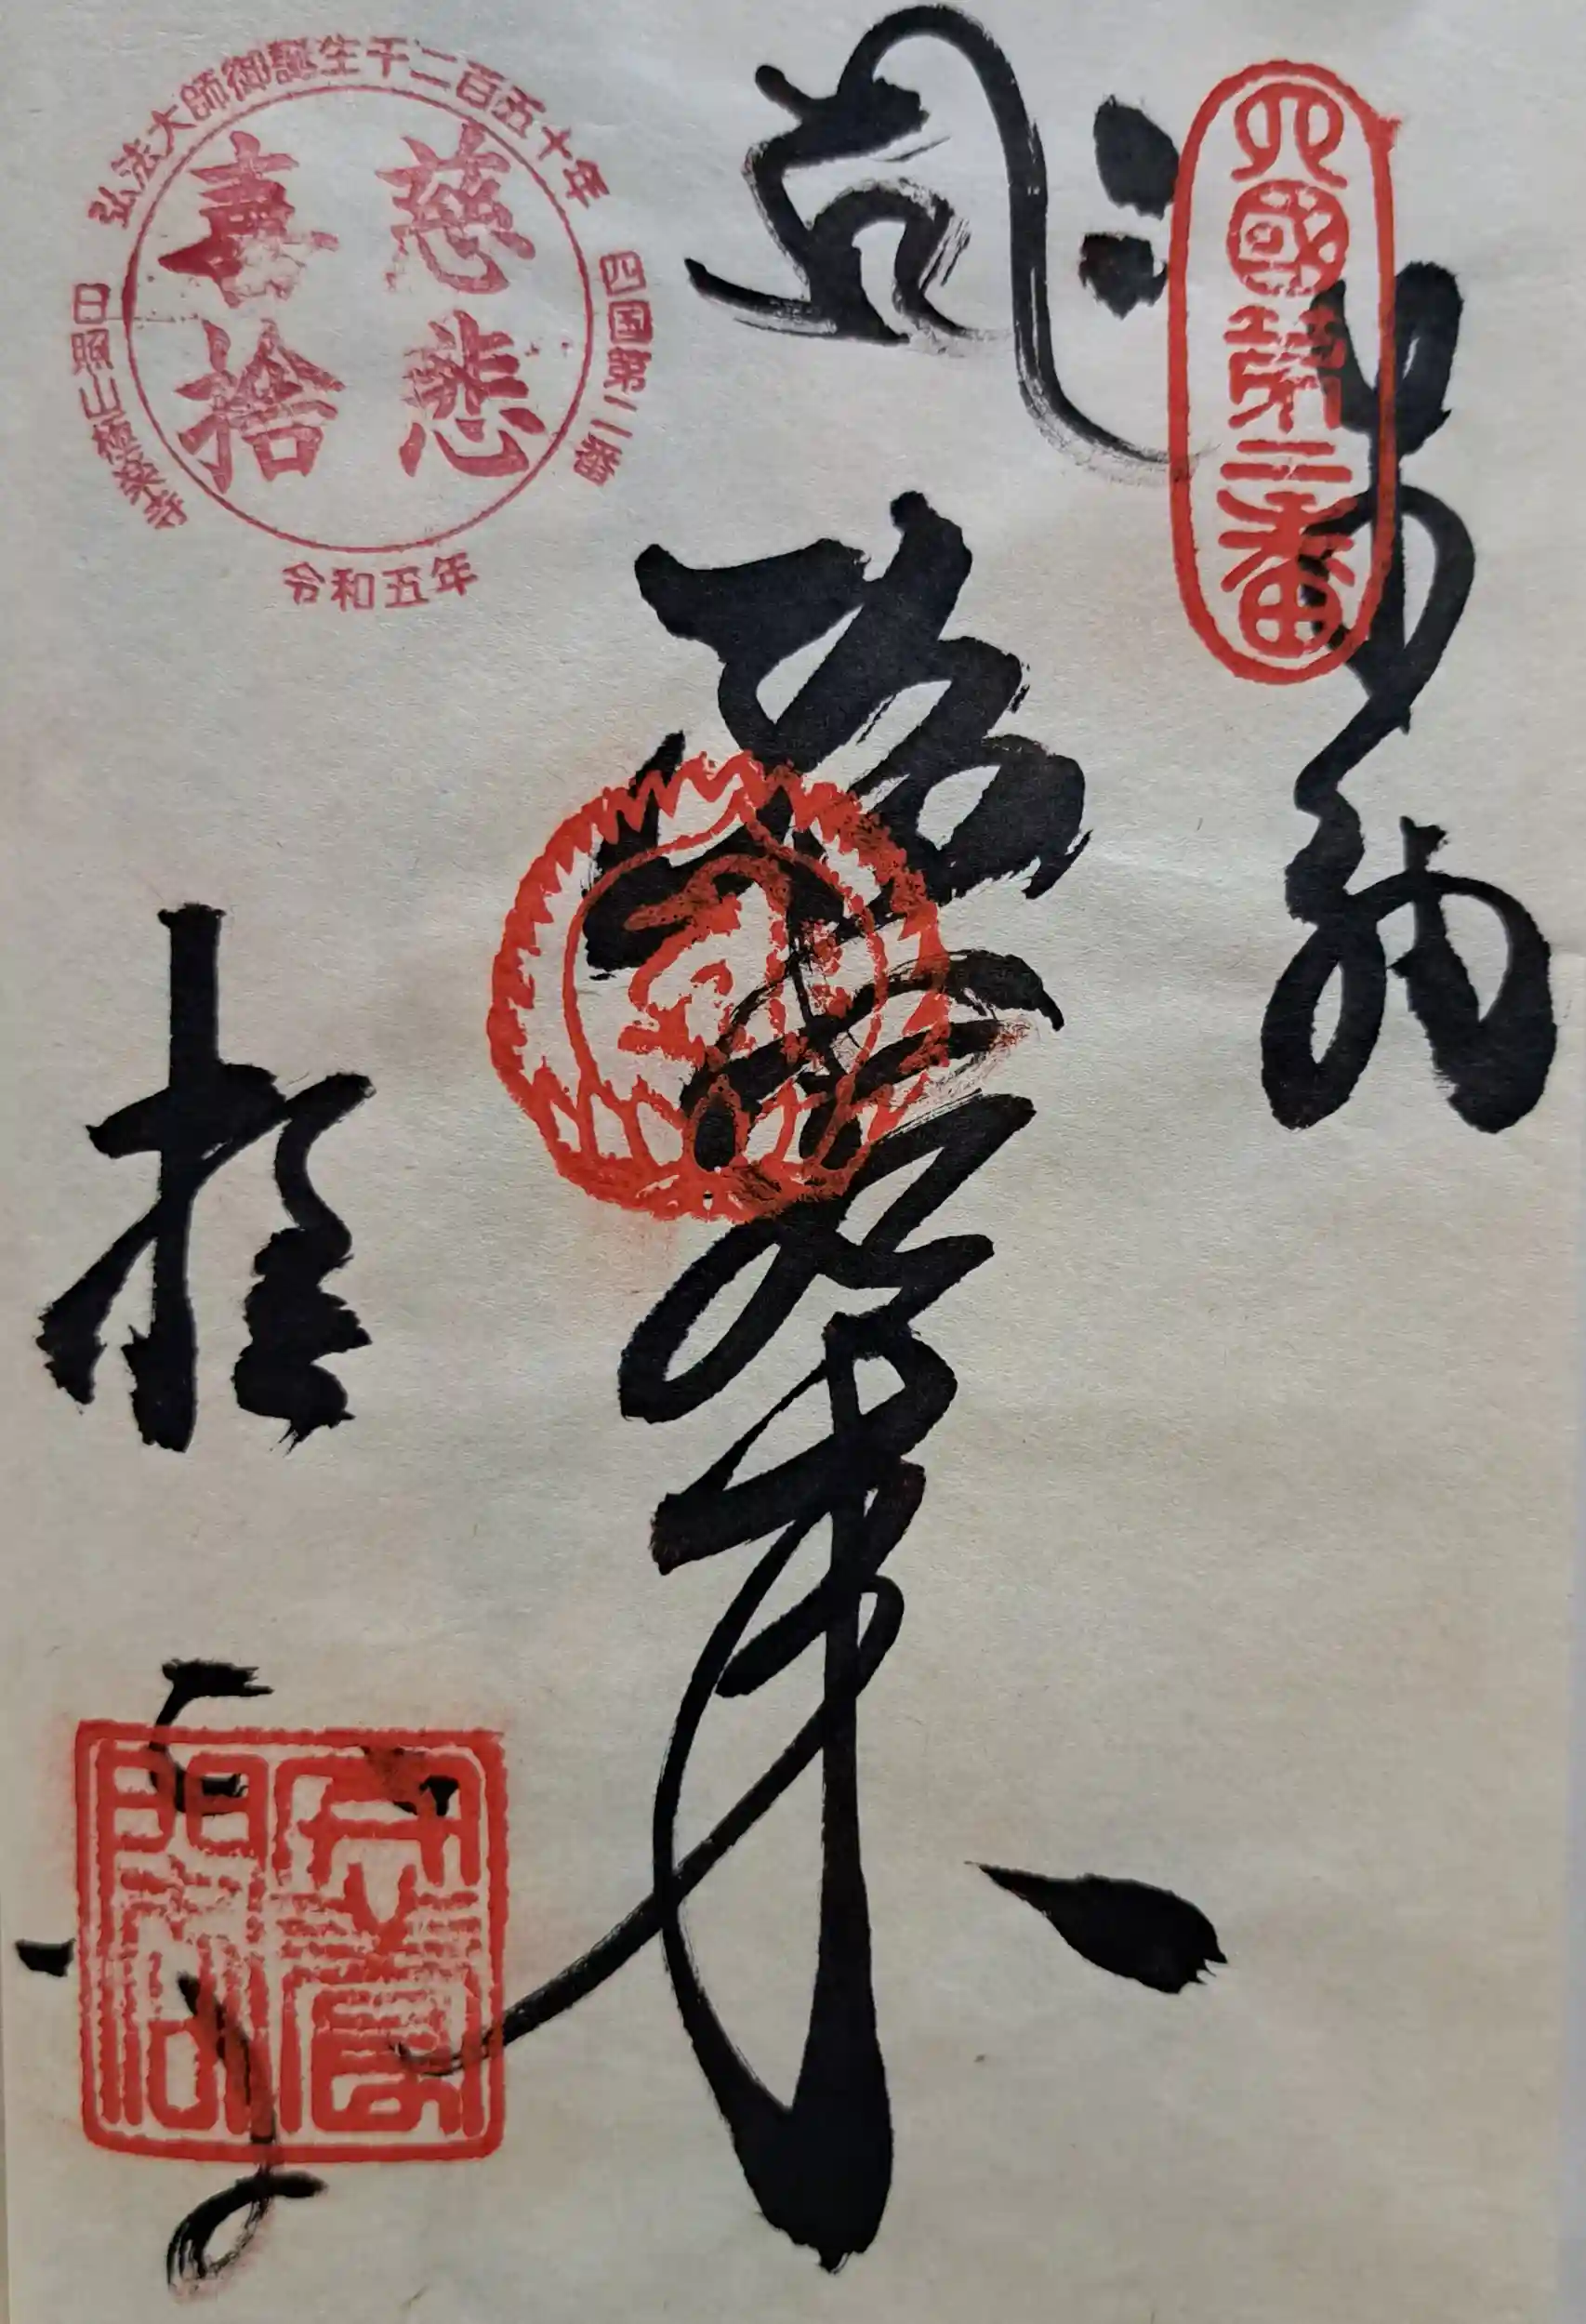 奉納
四國第二番
如来
弘法大師御誕生千二百五十年
四国第二番
慈悲
喜捨
日照山極楽寺
令和五年
極楽寺